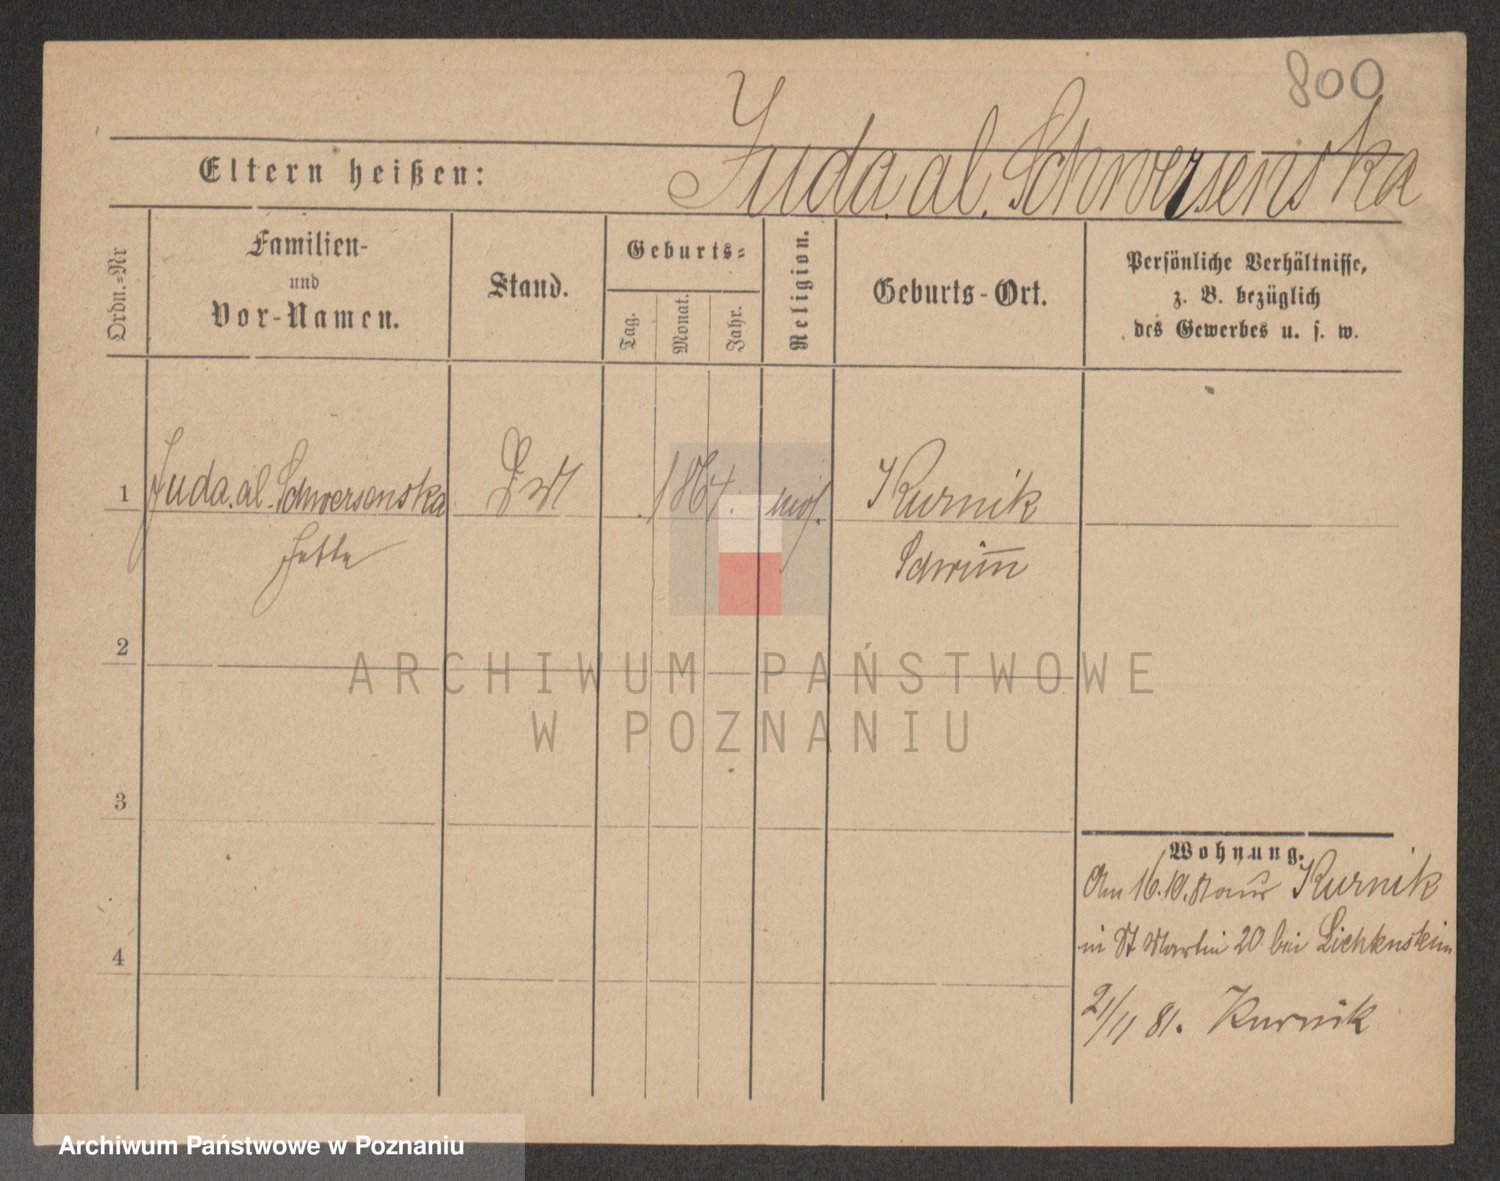 800
Juda. al. Schwersenska
Eltern heißen:
Ordn.-Nr
Familien-
und
Vor-Namen.
Stand.
Geburts-
Tag.
Monat.
Jahr.
Religion.
Geburts-Ort.
Persönliche Verhältnisse,
z. B. bezüglich
des Gewerbes u. s. w.
1 Juda. al. Schwersenska 1864. mos. Kurnik
Schrimm
2
ARCHIWUM PAŃSTWOWE
W POZNANIU
3
Wohnung.
Am 16.10.81 aus Kurnik
in St Martin 20 bei
4
21/11 81. Kurnik
Archiwum Państwowe w Poznaniu